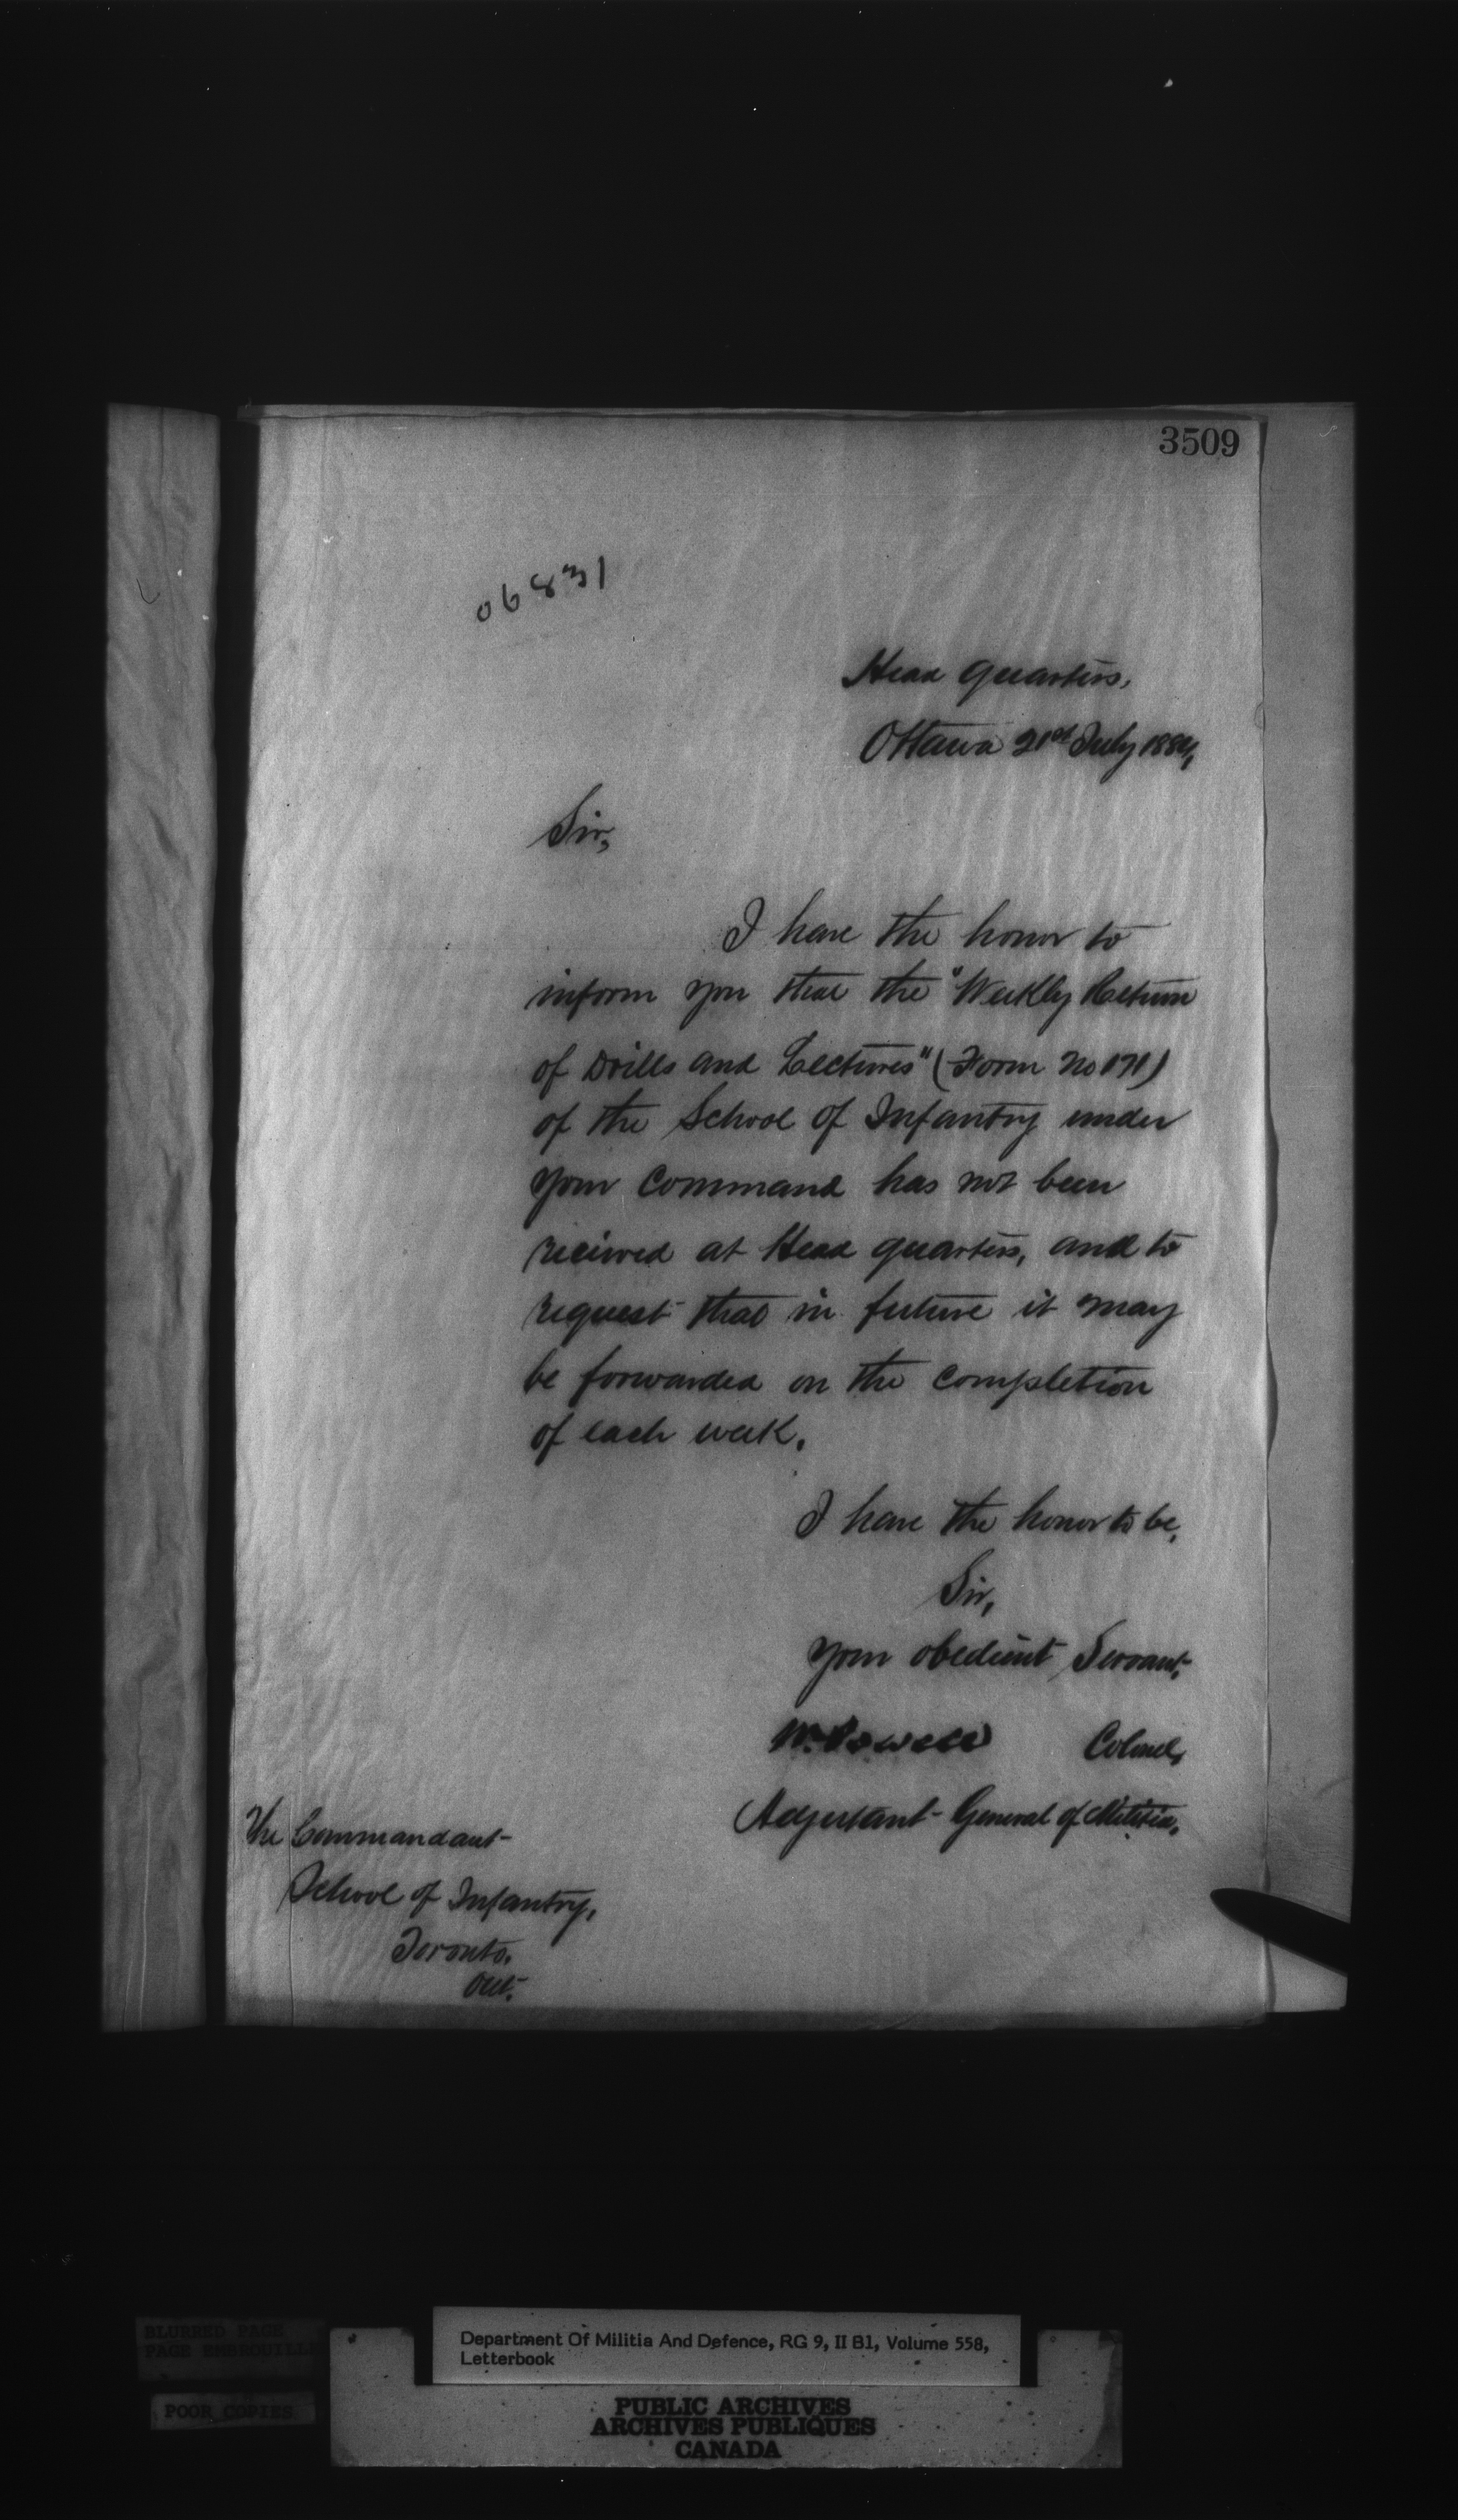 3509
06831
Head Quarters,
Ottawa 21st July 1884,
Sir,
I have the honor to
inform you that the "Weekly Return
of Drills and Lectures" (Form No 171)
of the School of Infantry under
your Command has not been
received at Head quarters, and to
request that in future it may
be forwarded on the completion
of each week.
I have the honor to be,
Sir,
Your obedient Servant,
W. Powell Colonel,
Adjutant-General of Militia,
The Commandant
School of Infantry,
Toronto.
Ont.
BLURRED PAGE
PAGE EMBROUILLE
POOR COPIES
Department Of Militia And Defence, RG 9, II B1, Volume 558,
Letterbook
PUBLIC ARCHIVES
ARCHIVES PUBLIQUES
CANADA